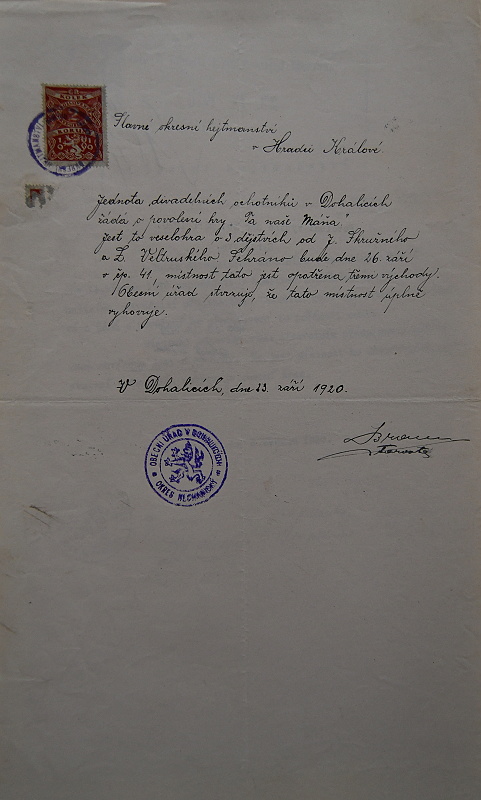 Slavné okresné hejtmanství
v Hradci Králové.
Jednota divadelních ochotníků v Dohalicích
žádá o povolení hry „Ta naše Máňa."
Jest to veselohra o 3 dějstvích od J. Skružného
a L. Veltruského. Sehráno bude dne 26. září
v čp. 41, místnost tato jest opatřena třemi východy.
Obecní úřad stvrzuje, že tato místnost úplně
vyhovuje.
V Dohalicích, dne 23. září 1920.
starosta
OBECNÍ ÚŘAD V DOHALICÍCH
OKRES NECHANICKÝ